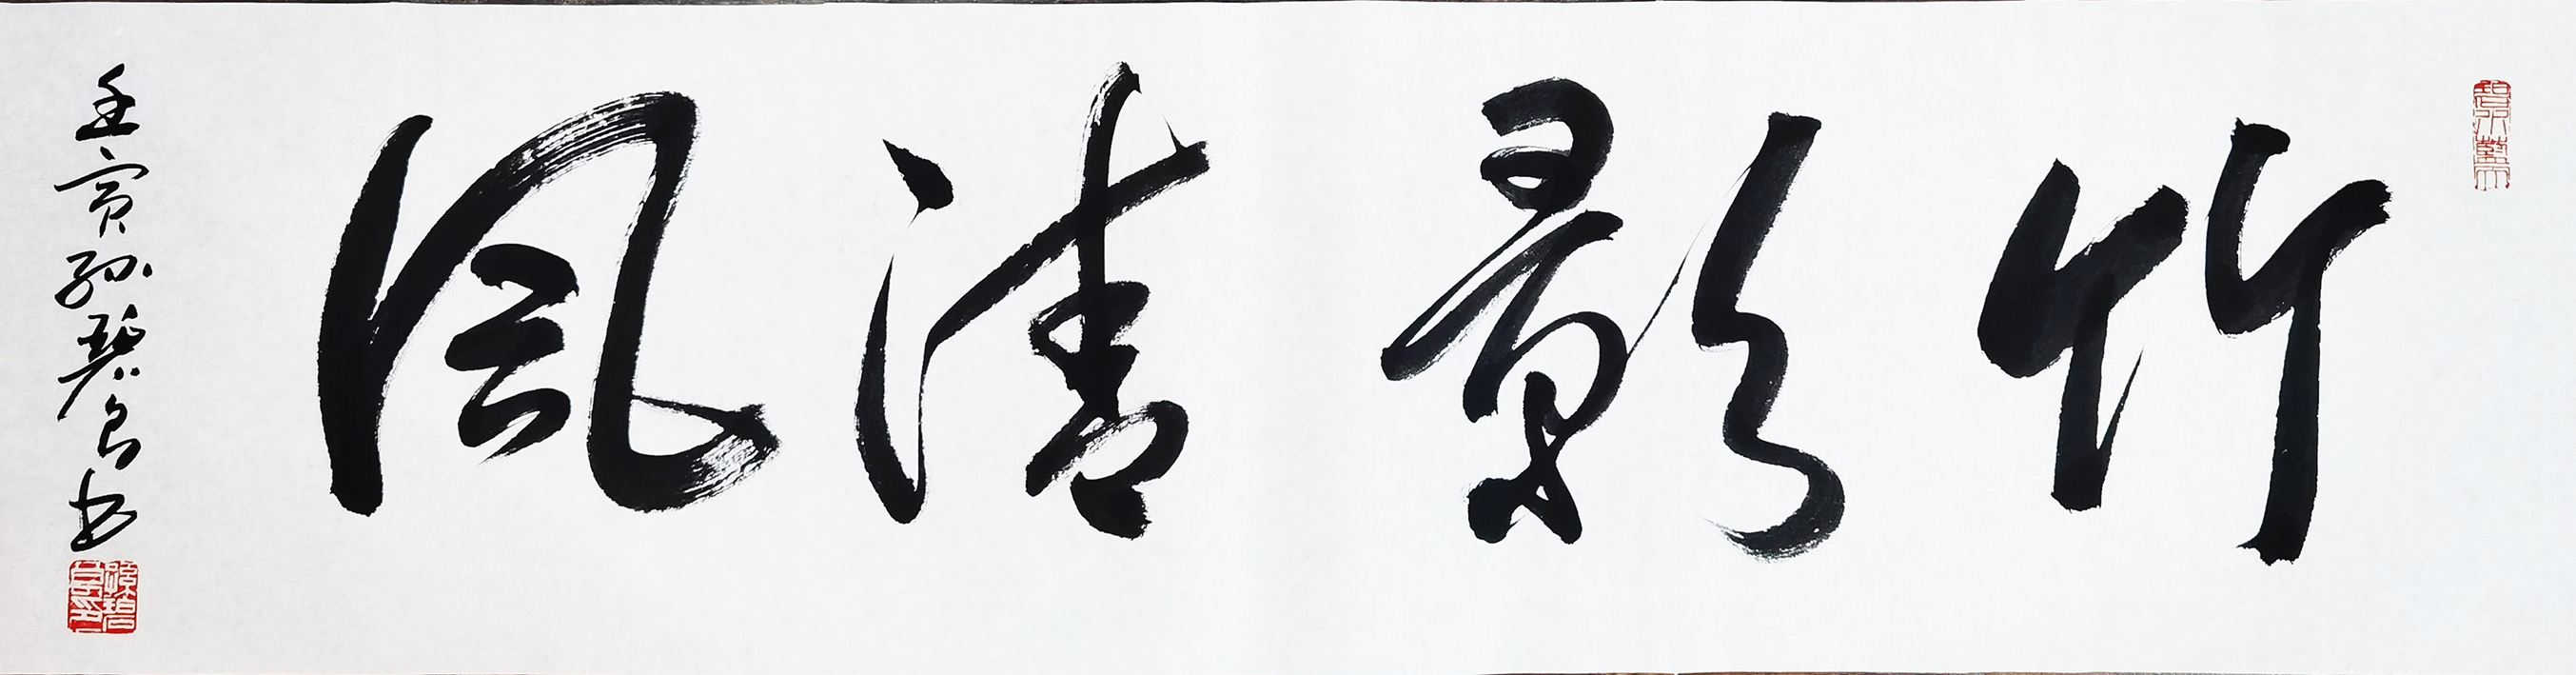 竹影清风
壬寅孙碧良书